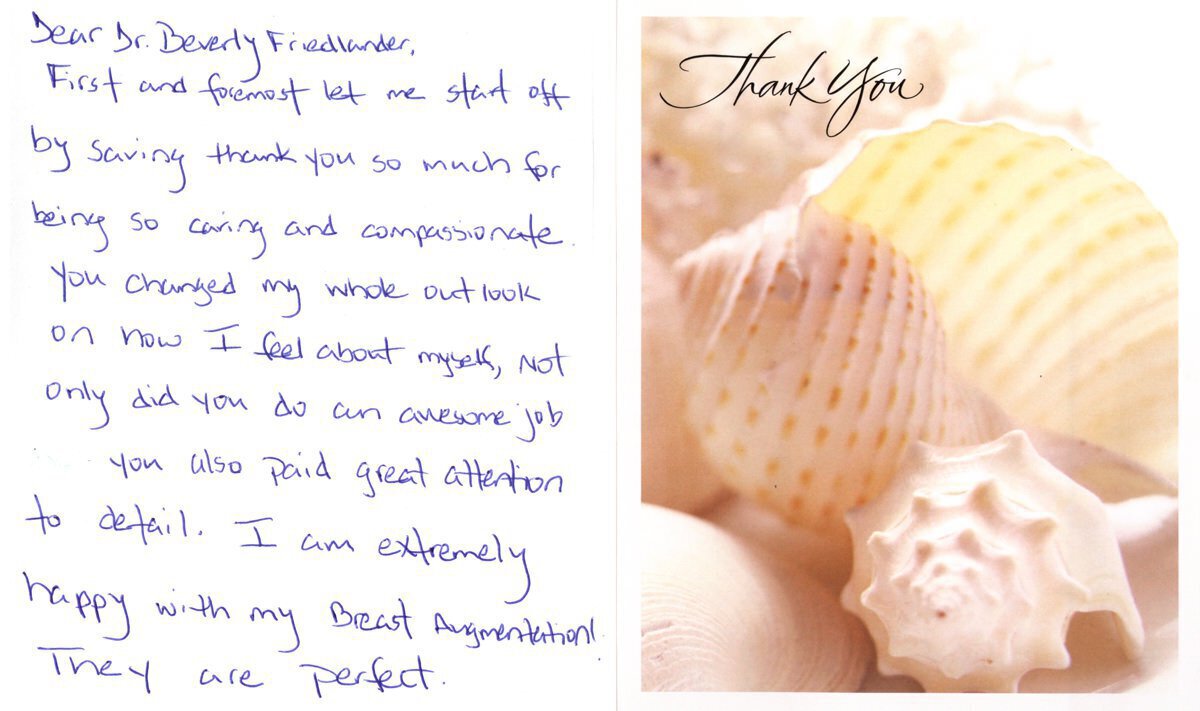 Dear Dr. Beverly Friedlander,
First and foremost let me start off
by saying thank you so much for
being so caring and compassionate.
You changed my whole outlook
on how I feel about myself, Not
only did you do an awesome job
you also paid great attention
to detail. I am extremely
happy with my Breast Augmentation!
They are perfect.
Thank You